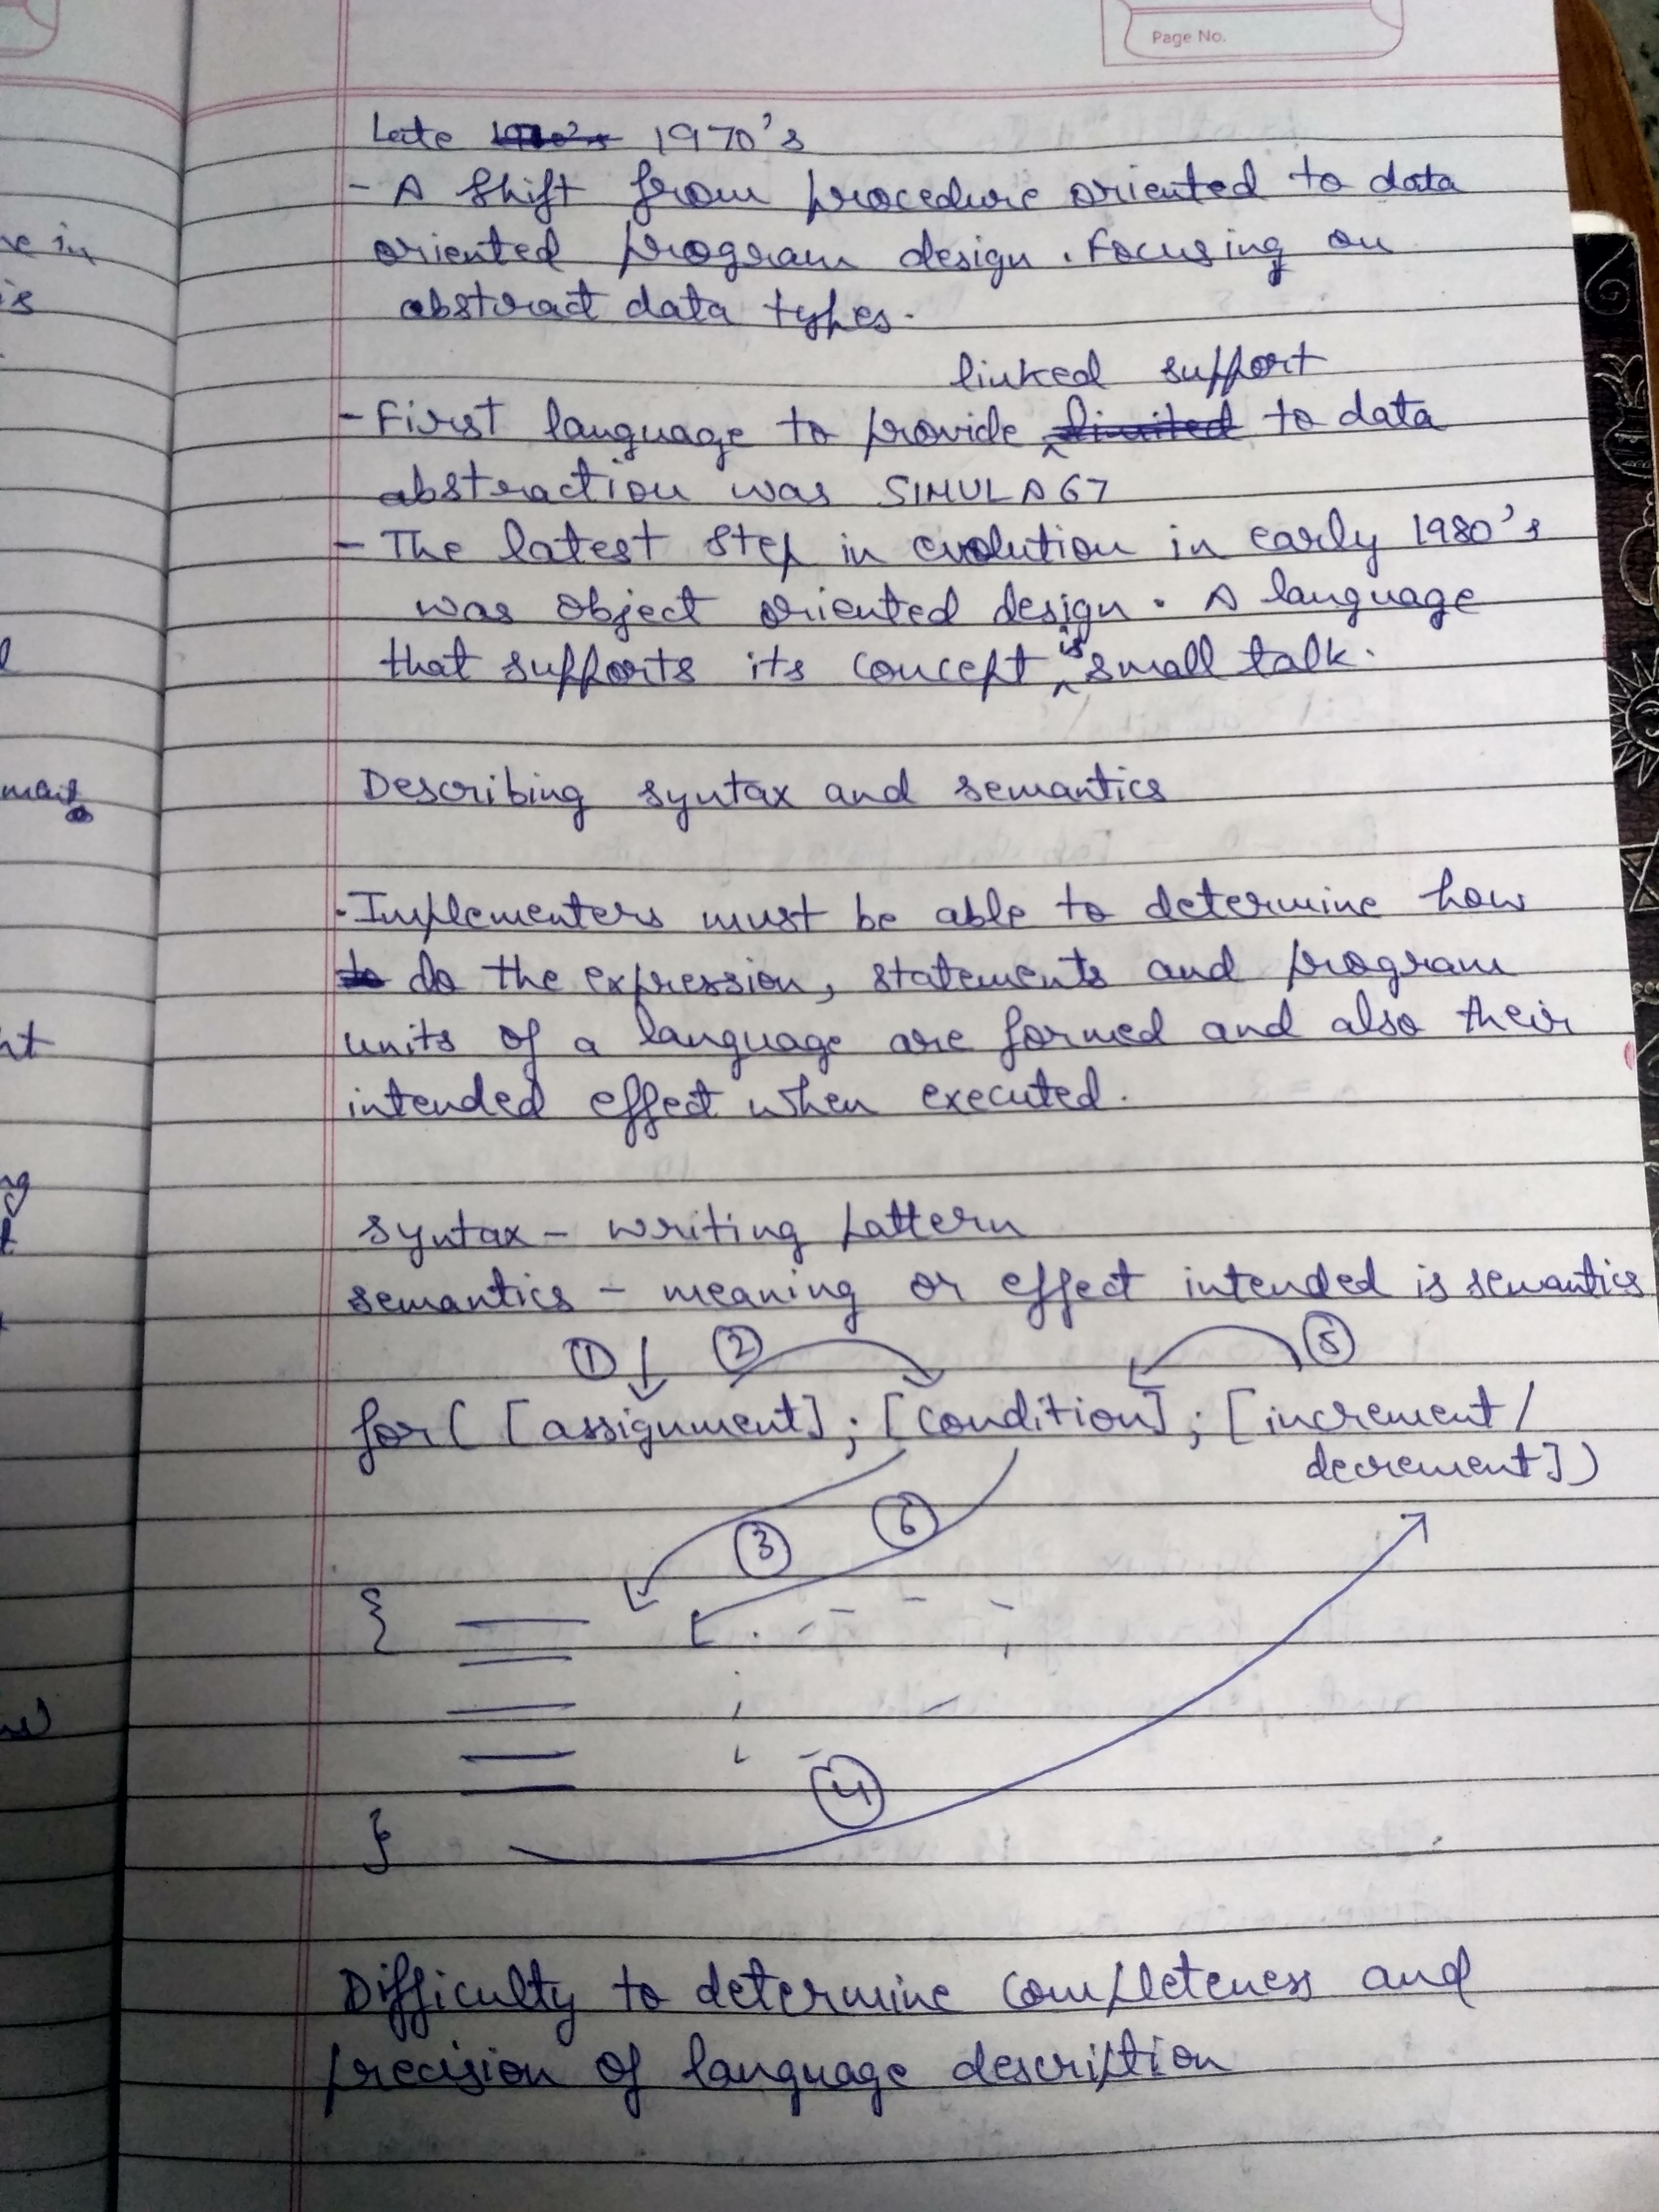 Page No.
Late 1970's
- A shift from procedure oriented to data
oriented program design. Focusing on
abstract data types.
linked support
- First language to provide limited to data
abstraction was SIMULA67
- The latest step in evolution in early 1980's
was object oriented design. A language
that supports its concept is small talk.
Describing syntax and semantics
. Implementers must be able to determine how
to do the expression, statements and program
units of a language are formed and also their
intended effect when executed.
syntax - writing pattern
semantics - meaning or effect intended is semantics
1 2 5
for ( [assignment]; [condition]; [increment/
decrement])
3 6
{
4
}
Difficulty to determine completeness and
precision of language description